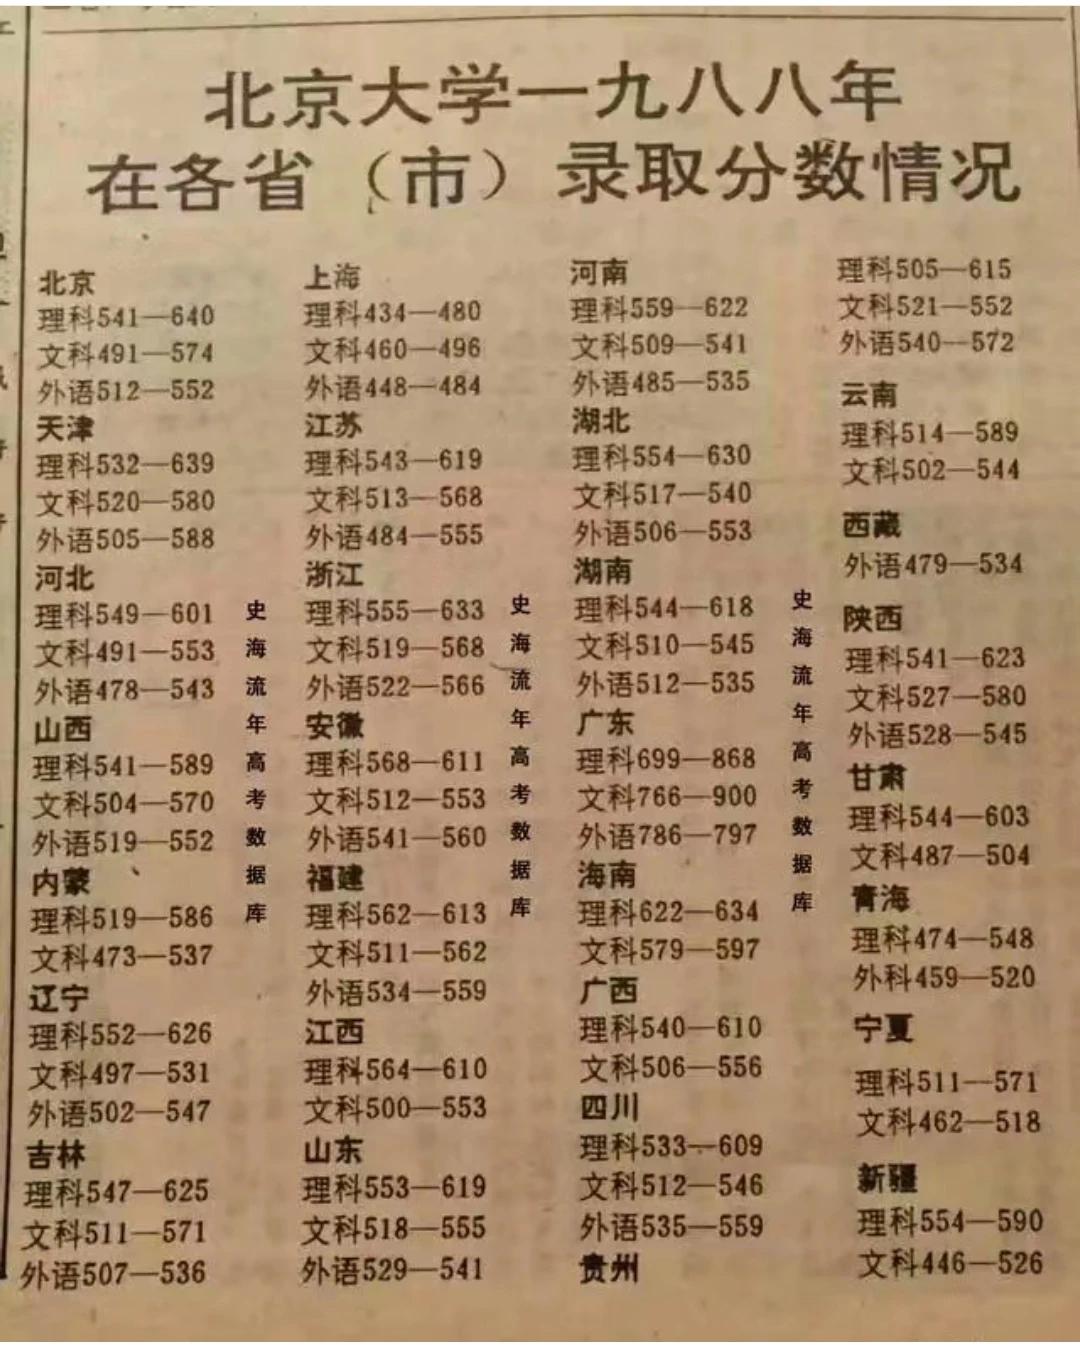 北京大学一九八八年
在各省（市）录取分数情况
北京
理科541—640
文科491—574
外语512—552
天津
理科532—639
文科520—580
外语505—588
河北
理科549—601
文科491—553
外语478—543
山西
理科541—589
文科504—570
外语519—552
内蒙
理科519—586
文科473—537
辽宁
理科552—626
文科497—531
外语502—547
吉林
理科547—625
文科511—571
外语507—536
史海流年高考数据库
上海
理科434—480
文科460—496
外语448—484
江苏
理科543—619
文科513—568
外语484—555
浙江
理科555—633
文科519—568
外语522—566
安徽
理科568—611
文科512—553
外语541—560
福建
理科562—613
文科511—562
外语534—559
江西
理科564—610
文科500—553
山东
理科553—619
文科518—555
外语529—541
史海流年高考数据库
河南
理科559—622
文科509—541
外语485—535
湖北
理科554—630
文科517—540
外语506—553
湖南
理科544—618
文科510—545
外语512—535
广东
理科699—868
文科766—900
外语786—797
海南
理科622—634
文科579—597
广西
理科540—610
文科506—556
四川
理科533—609
文科512—546
外语535—559
贵州
史海流年高考数据库
理科505—615
文科521—552
外语540—572
云南
理科514—589
文科502—544
西藏
外语479—534
陕西
理科541—623
文科527—580
外语528—545
甘肃
理科544—603
文科487—504
青海
理科474—548
外科459—520
宁夏
理科511—571
文科462—518
新疆
理科554—590
文科446—526